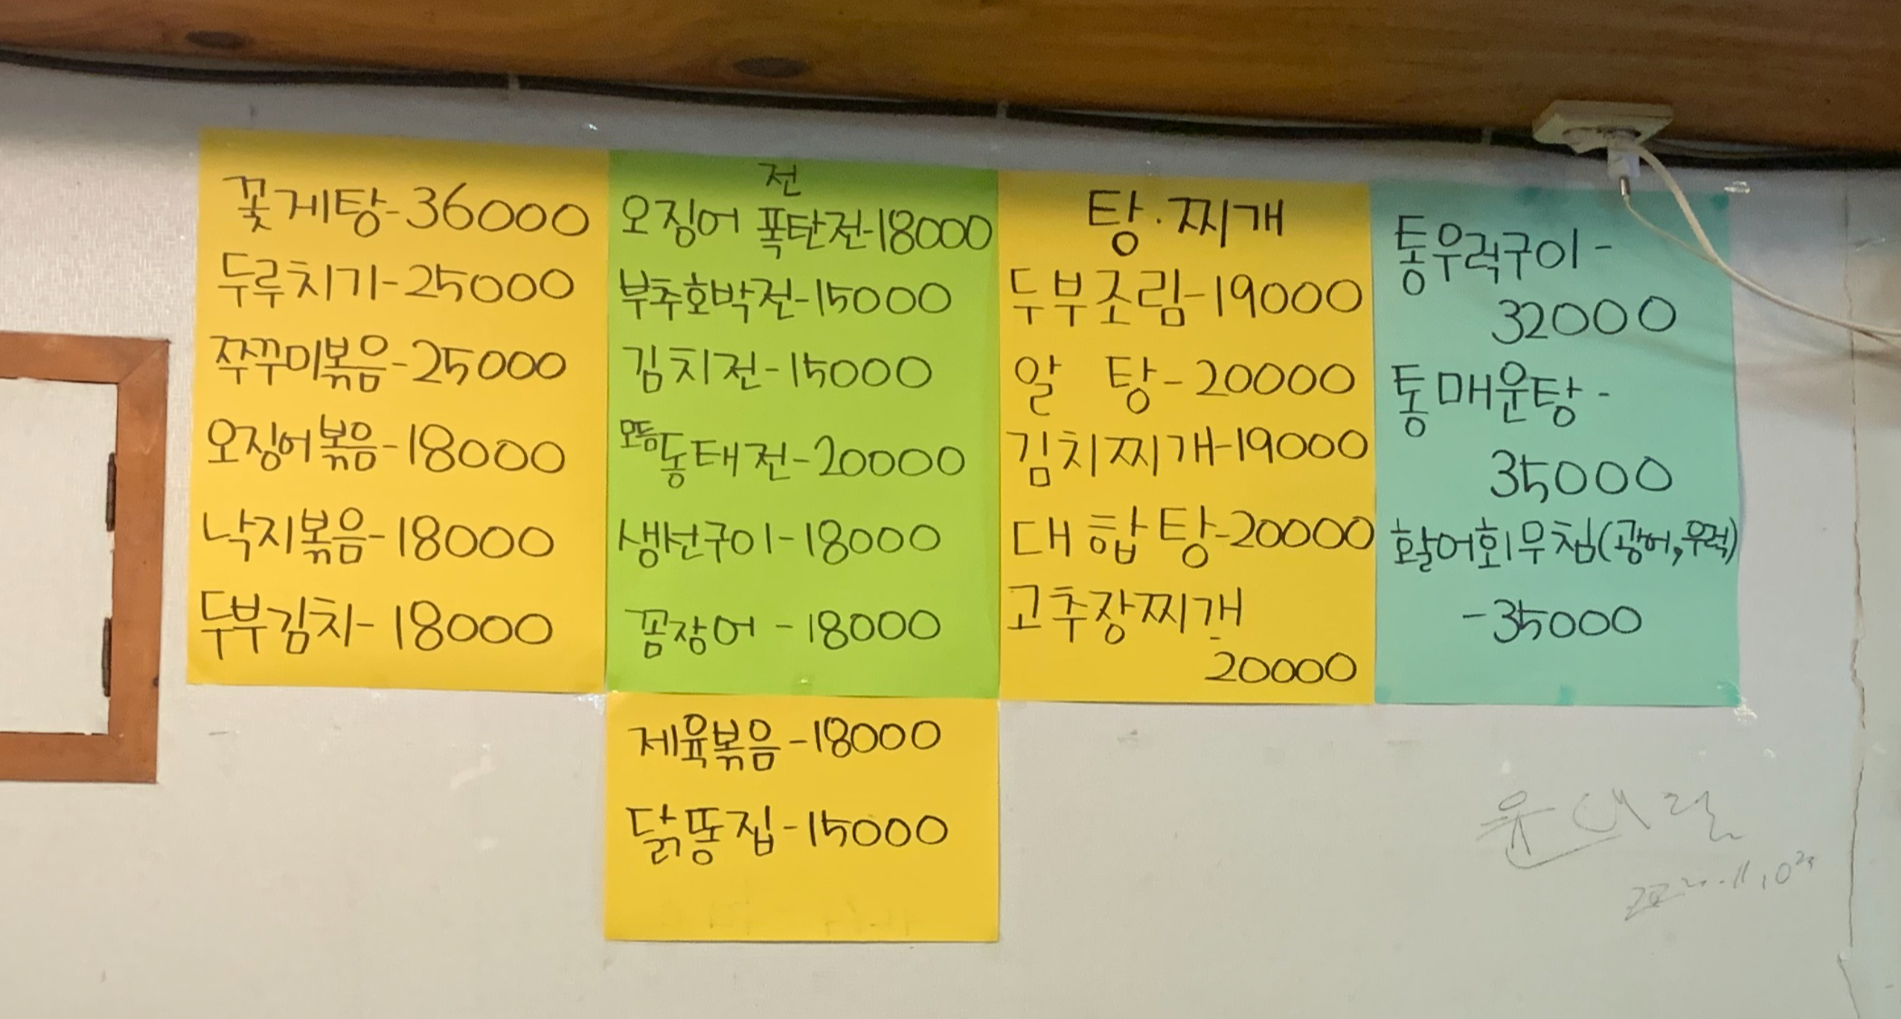 꽃게탕-36000
두루치기-25000
쭈꾸미볶음-25000
오징어볶음-18000
낙지볶음-18000
두부김치-18000
전
오징어 폭탄전-18000
부추호박전-15000
김치전-15000
모듬동태전-20000
생선구이-18000
꼼장어-18000
제육볶음-18000
닭똥집-15000
탕.찌개
두부조림-19000
알 탕-20000
김치찌개-19000
대합탕-20000
고추장찌개-
20000
통우럭구이-
32000
통매운탕-
35000
활어회무침(광어,우럭)
-35000